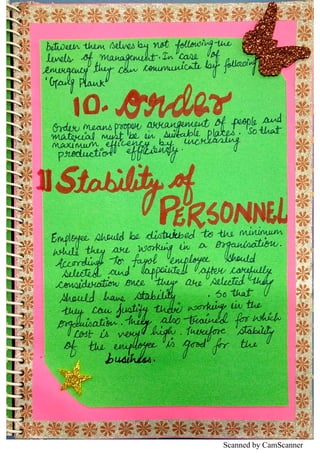 between them selves by not following the
levels of management. In case of
emergency they can communicate by following
"Gang Plank"
10. Order
Order means proper arrangement of people and
material must be in suitable places. So that
maximum efficency by increasing
production efficiency.
11 Stability of
PERSONNEL
Employee should be disturbed to the minimum
while they are working in a organisation.
According to fayol employee should
selected and appointed after carefully
consideration once they are selected they
should have stability. So that
they can justify their working in the
organisation. They also trained for which
cost is very high. Therefore stability
of the employee is good for the
business.
Scanned by CamScanner